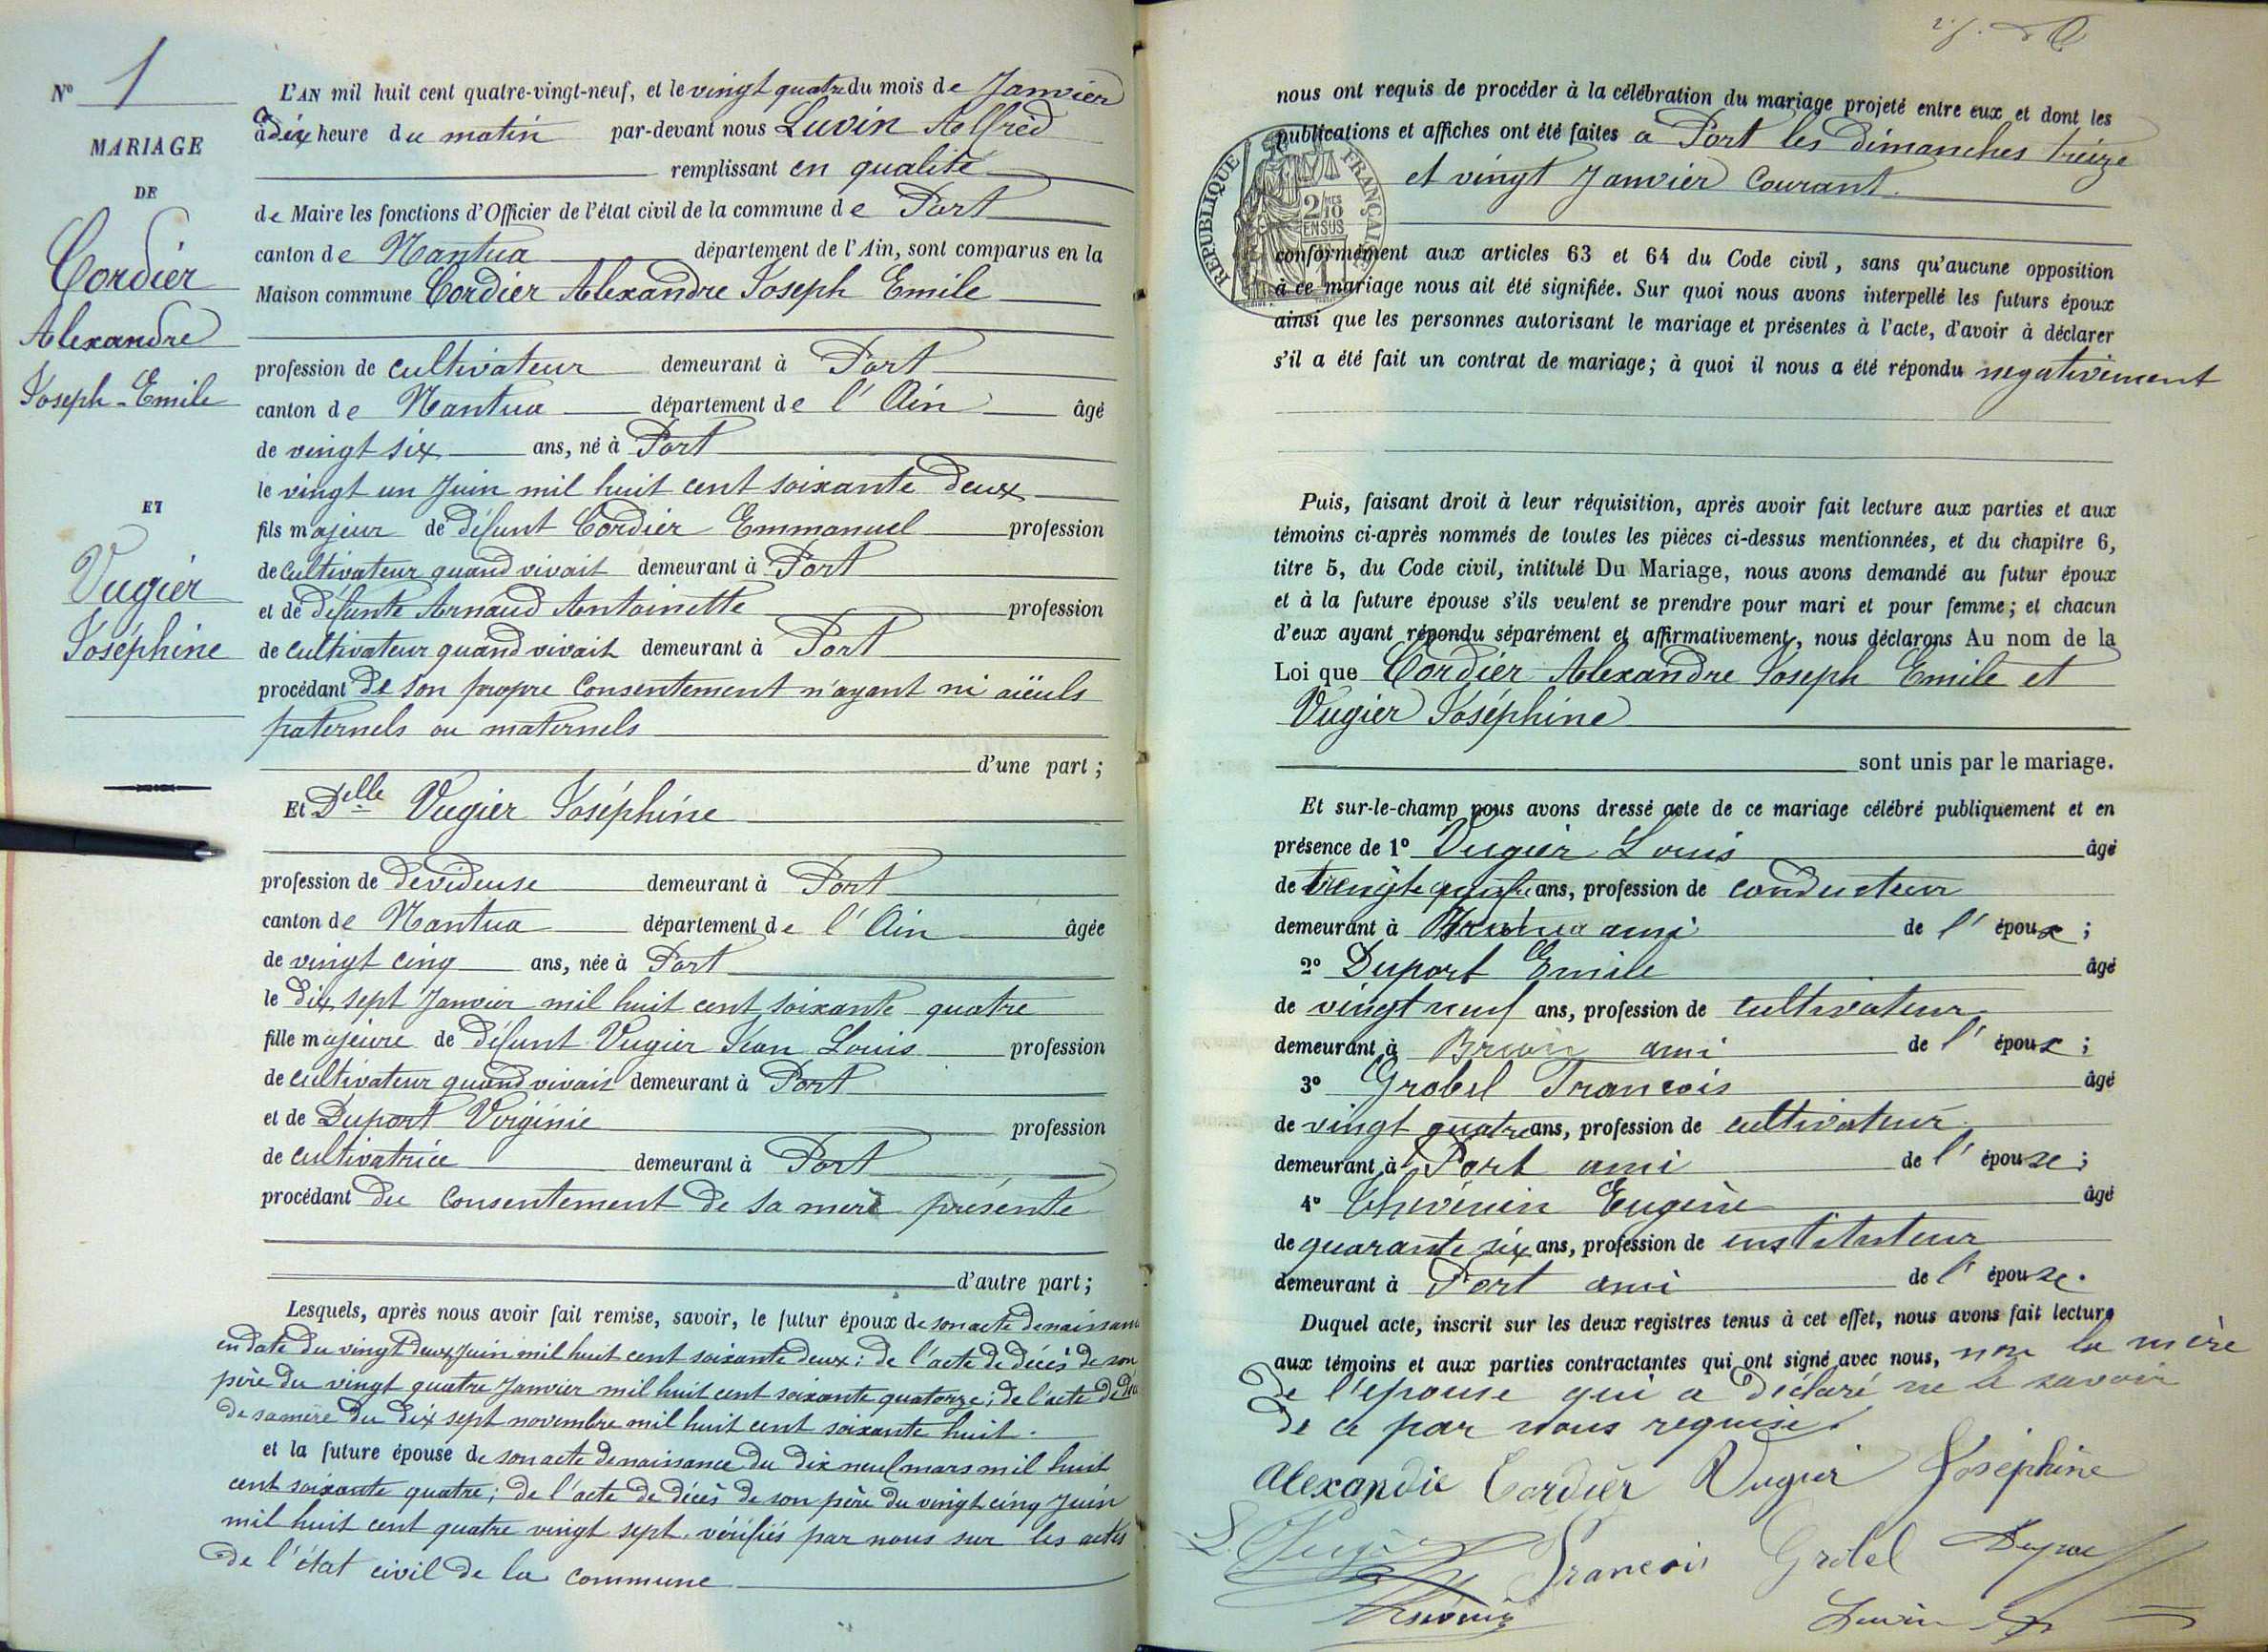 N° 1
MARIAGE
DE
Cordier
Alexandre
Joseph-Emile
ET
Vugier
Joséphine
L'AN mil huit cent quatre-vingt-neuf, et le vingt quatre du mois de Janvier
à dix heure du matin par-devant nous Luvin Alfred
remplissant en qualité
de Maire les fonctions d'Officier de l'état civil de la commune de Port
canton de Nantua département de l'Ain, sont comparus en la
Maison commune Cordier Alexandre Joseph Emile
profession de cultivateur demeurant à Port
canton de Nantua département de l'Ain âgé
de vingt six ans, né à Port
le vingt un Juin mil huit cent soixante deux
fils majeur de défunt Cordier Emmanuel profession
de cultivateur quand vivait demeurant à Port
et de défunte Arnaud Antoinette profession
de cultivateur quand vivait demeurant à Port
procédant de son propre consentement n'ayant ni aïeuls
paternels ou maternels
d'une part ;
Et Delle Vugier Joséphine
profession de devideuse demeurant à Port
canton de Nantua département de l'Ain âgée
de vingt cinq ans, née à Port
le dix sept Janvier mil huit cent soixante quatre
fille majeure de défunt Vugier Jean Louis profession
de cultivateur quand vivait demeurant à Port
et de Duport Virginie profession
de cultivatrice demeurant à Port
procédant du consentement de sa mère présente
d'autre part ;
Lesquels, après nous avoir fait remise, savoir, le futur époux de son acte de naissance
en date du vingt deux Juin mil huit cent soixante deux ; de l'acte de décès de son
père du vingt quatre Janvier mil huit cent soixante quatorze ; de l'acte de
de sa mère du dix sept novembre mil huit cent soixante huit.
et la future épouse de son acte de naissance du dix neuf mars mil huit
cent soixante quatre ; de l'acte de décès de son père du vingt cinq Juin
mil huit cent quatre vingt sept. vérifiés par nous sur les actes
de l'état civil de la commune
nous ont requis de procéder à la célébration du mariage projeté entre eux et dont les
publications et affiches ont été faites a Port les dimanches treize
et vingt Janvier courant.
RÉPUBLIQUE FRANÇAISE
2/10 EN SUS
conformément aux articles 63 et 64 du Code civil, sans qu'aucune opposition
à ce mariage nous ait été signifiée. Sur quoi nous avons interpellé les futurs époux
ainsi que les personnes autorisant le mariage et présentes à l'acte, d'avoir à déclarer
s'il a été fait un contrat de mariage ; à quoi il nous a été répondu negativement
Puis, faisant droit à leur réquisition, après avoir fait lecture aux parties et aux
témoins ci-après nommés de toutes les pièces ci-dessus mentionnées, et du chapitre 6,
titre 5, du Code civil, intitulé Du Mariage, nous avons demandé au futur époux
et à la future épouse s'ils veulent se prendre pour mari et pour femme ; et chacun
d'eux ayant répondu séparément et affirmativement, nous déclarons Au nom de la
Loi que Cordier Alexandre Joseph Emile et
Vugier Joséphine
sont unis par le mariage.
Et sur-le-champ nous avons dressé acte de ce mariage célébré publiquement et en
présence de 1° Vugier Louis âgé
de ans, profession de conducteur
demeurant à ami de l'époux ;
2° Duport Emile âgé
de vingt neuf ans, profession de cultivateur
demeurant à Brion ami de l'époux ;
3° Grobel Francois âgé
de vingt quatre ans, profession de cultivateur
demeurant à Port ami de l'épouse ;
4° Thévenin Eugène âgé
de quarante six ans, profession de instituteur
demeurant à Port ami de l'épouse.
Duquel acte, inscrit sur les deux registres tenus à cet effet, nous avons fait lecture
aux témoins et aux parties contractantes qui ont signé avec nous, non la mère
de l'épouse qui a déclaré ne le savoir
de ce par nous requise.
Alexandre Cordier Vugier Joséphine
Francois Grobel
Luvin